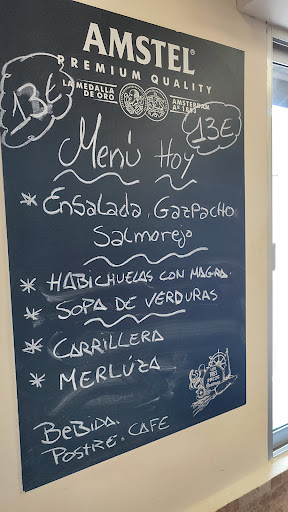 AMSTEL®
PREMIUM QUALITY
LA MEDALLA DE ORO
AMSTERDAM Aº 1883
13€
13€
Menú Hoy
* Ensalada, Gazpacho
Salmorejo
* HABICHUELAS CON MAGRA
* SOPA DE VERDURAS
* CARRILLERA
* MERLÚZA
BeBiDA.
POSTRE. CAFE